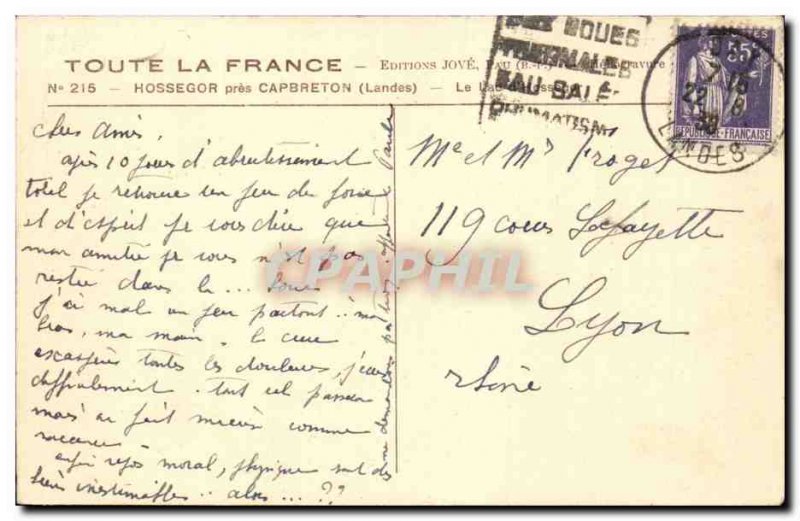 TOUTE LA FRANCE – EDITIONS JOVÉ, PAU
N° 215 - HOSSEGOR près CAPBRETON (Landes) - Le Lac
BOUES
THERMALES
EAU SALÉE
RHUMATISM
55c
REPUBLIQUE-FRANÇAISE
22 8
LANDES
Chers Amis,
après 10 jours d'abrutissement
total je retrouve un peu de force
et d'esprit je vous dire que
mon amitié pr vous n'est pas
restée dans la ... boue
j'ai mal un peu partout : ma
bras, ma main. la cure
exaspère toutes les douleurs, j'
tout cel passera
mais on fait mieux comme
vacances.
enfin repos moral, physique sont des
biens inestimables .. alors ... ??
Paule
Me et Mr Froget
119 cours Lafayette
Lyon
Rhône
CPAPHIL